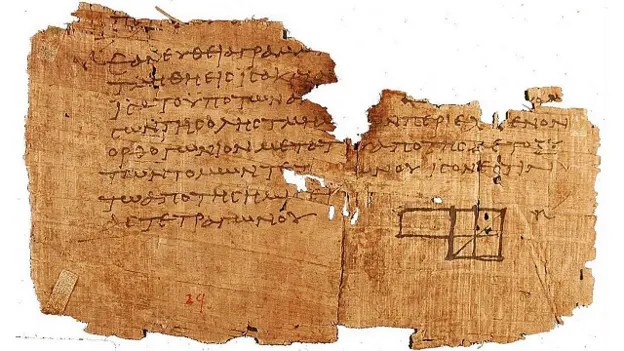 ΕΑΝΕΥΘΕΙΑΓΡΑΜ
ΤΜΗΘΗΕΙϹΙϹΑΚ
ΙϹΑΤΟΥΠΟΤΩΝΑ
ϹΩΝΤΗϹΟΛΗϹΤΜΗ ΩΝΠΕΡΙΕΧ ΜΕΝΟΝ
ΟΡΘΟΓΩΝΙΟΝΜΕΤΑΤΟΥΑΠΟΤΗϹΜΕΤΟΞΥ
ΤΩΝΤΟΜΩΝΤΕΤ ΩΝΟΥΙϹΟΝΕϹΤΙΝ
ΤΩΑΠΟΤΗϹΗΜΙ
ΑϹΤΕΤΡΑΓΩΝΟΥ
29